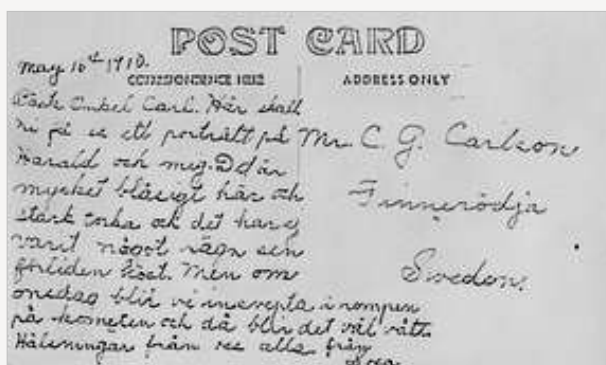 POST CARD
May 10th 1910.
CORRESPONDENCE HERE
ADDRESS ONLY
Bäste Onkel Carl. Här skall
ni få se ett porträtt på
Harald och mig. Det är
mycket blåsigt här och
stark torka och det har ej
varit något rägn sen
förliden höst. Men om
onsdag blir vi insvepta i rompen
på kometen och då blir det väl vått.
Hälsningar från oss alla från
Mr. C. G. Carlson
Finnerödja
Sweden.